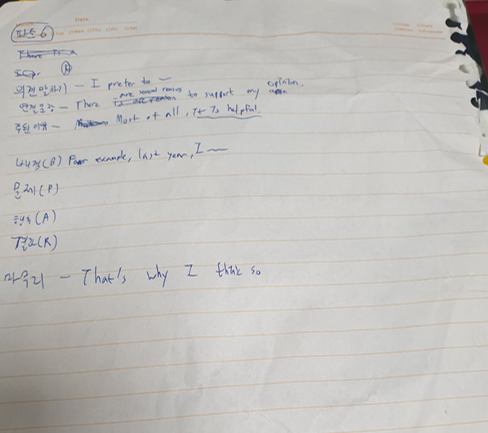 파트6
There is a
의견말하기 - I prefer to ~
연결문장 - There are several reasons to support my opinion.
주된이유 - Most of all, it is helpful.
배경(B) For example, last year, I ~
문제(P)
행동(A)
결과(R)
마무리 - That's why I think so